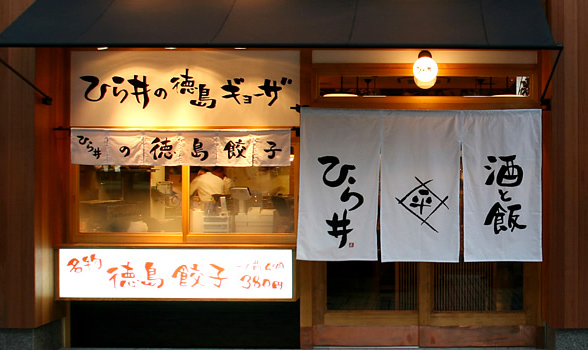 ひら井の徳島ギョーザ
ひら井の徳島餃子
名物 徳島餃子 380円
ひら井
平
酒と飯